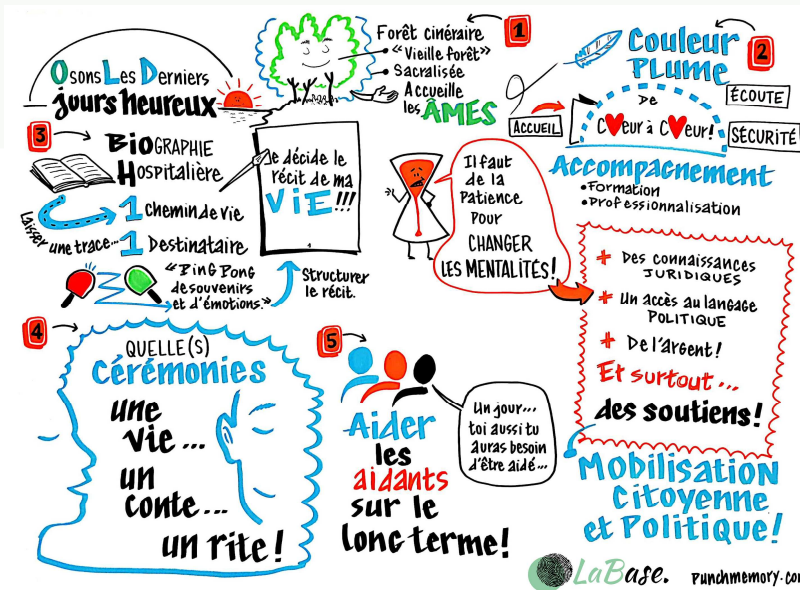 Osons Les Derniers
jours heureux
1
Forêt cinéraire
• "Vieille forêt"
• Sacralisée
• Accueille
les ÂMES
2
Couleur
PLUME
ACCUEIL
De
Cœur à Cœur!
ÉCOUTE
SÉCURITÉ
Accompagnement
• Formation
• Professionnalisation
3
BiOGRAPHIE
Hospitalière
Laisser une trace...
1 chemin de vie
1 Destinataire
"Ping Pong
de souvenirs
et d'émotions."
Je décide le
récit de ma
ViE!!!
Structurer
le récit.
Il faut
de la
Patience
Pour
CHANGER
LES MENTALITÉS!
+ Des connaissances
JURIDIQUES
+ Un accès au langage
POLITIQUE
+ De l'argent!
Et surtout...
des soutiens!
Mobilisation
citoyenne
et Politique!
4
QUELLE(S)
cérémonies
une
vie...
un
conte...
un rite!
5
Aider
les
aidants
sur le
long terme!
Un jour...
toi aussi tu
auras besoin
d'être aidé...
LaBase.
Punchmemory.com